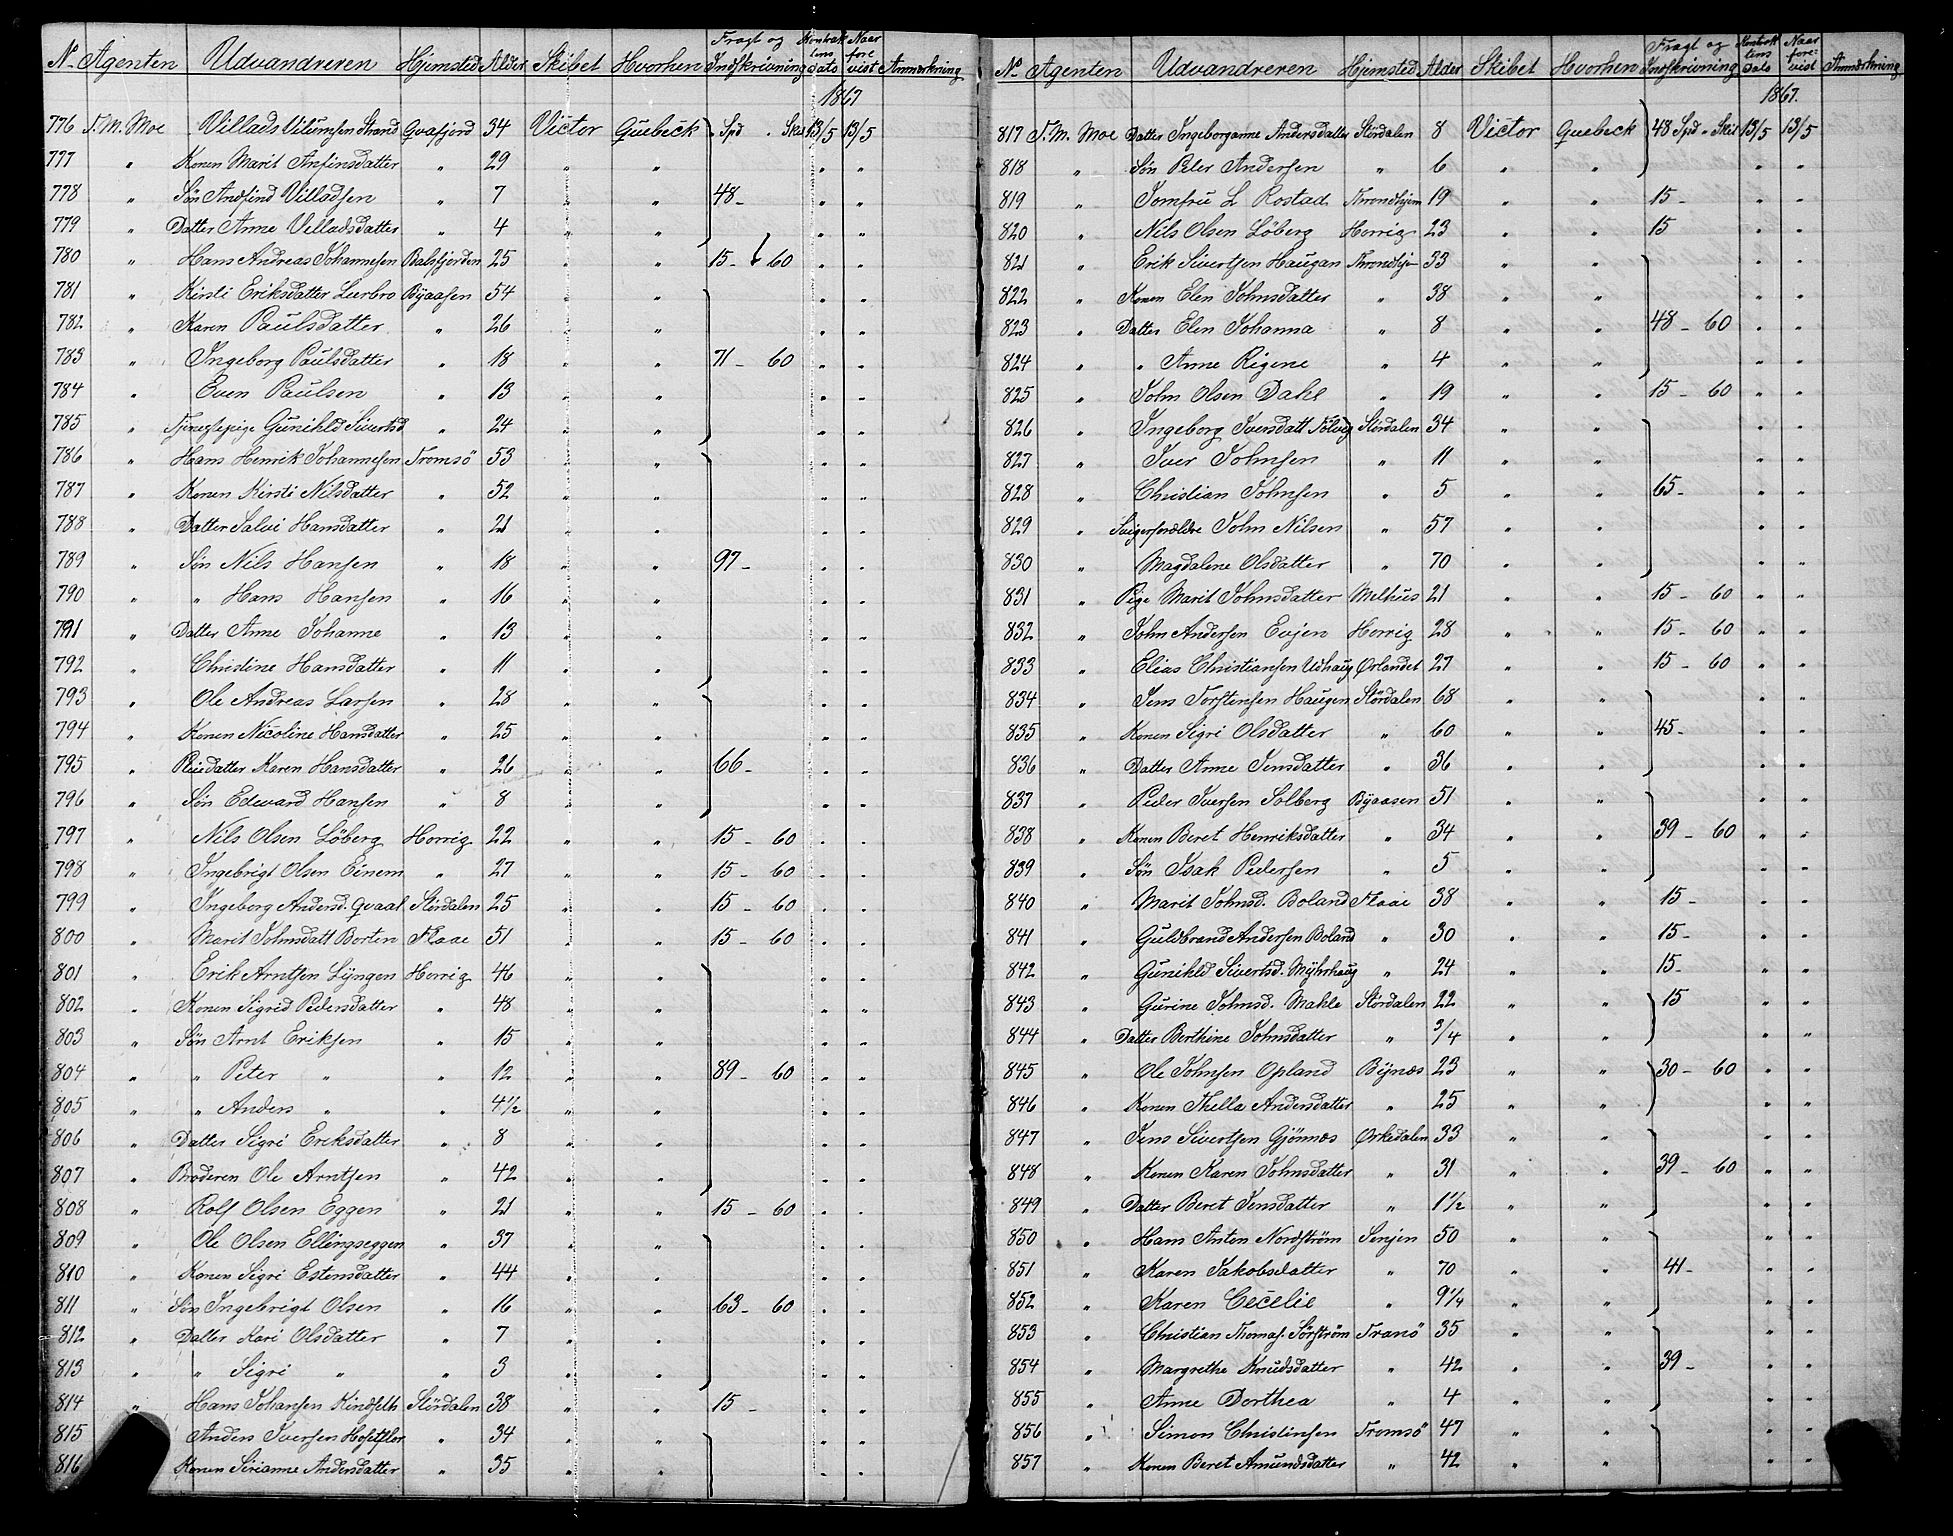 No Agenten Udvandreren Hjemsted Alder Skibet Hvorhen Fragt og Indskrivning Kontraktens Dato Naar forevist Anmærkning
1867
776 T. M. Moe Villads Strand Qvafjord 34 Victor Quebeck Spd " Sk 13/5 13/5
777 " Konen Marit Anfinsdatter " 29 " " " "
778 " Søn Andfind Villadsen " 7 " " 48 - " "
779 " Datter Anne Villadsdatter " 4 " " " "
780 " Hans Andreas Johannesen Balsfjorden 25 " " 15 - 60 " "
781 " Kirsti Eriksdatter Leerbro Byaasen 54 " " " "
782 " Karen Paulsdatter " 26 " " " "
783 " Ingeborg Paulsdatter " 18 " " 71 - 60 " "
784 " Even Paulsen " 13 " " " "
785 " Tjenestepige Gunihld Sivertsd " 24 " " " "
786 " Hans Henrik Johannesen Tromsö 53 " " " "
787 " Konen Kirsti Nilsdatter " 52 " " " "
788 " Datter Salvi Hansdatter " 21 " " " "
789 " Søn Nils Hansen " 18 " " 97 - " "
790 " " Hans Hansen " 16 " " " "
791 " Datter Anne Johanne " 13 " " " "
792 " Christine Hansdatter " 11 " " " "
793 " Ole Andreas Larsen " 28 " " " "
794 " Konen Nicoline Hansdatter " 25 " " " "
795 " Pleiedatter Karen Hansdatter " 26 " " 66 - " "
796 " Søn Edevard Hansen " 8 " " " "
797 " Nils Olsen Löberg Horrig 22 " " 15 - 60 " "
798 " Ingebrigt Olsen Einem " 27 " " 15 - 60 " "
799 " Ingeborg Andersd. Qvaal Stördalen 25 " " 15 - 60 " "
800 " Marit Johnsdatt Borten Flaae 51 " " 15 - 60 " "
801 " Erik Arntsen Lyngen Horrig 46 " " " "
802 " Konen Sigrid Pedersdatter " 48 " " " "
803 " Søn Arnt Eriksen " 15 " " " "
804 " " Peter " " 12 " " 89 - 60 " "
805 " " Anders " " 4 1/2 " " " "
806 " Datter Sigri Eriksdatter " 8 " " " "
807 " Broderen Ole Arntsen " 42 " " " "
808 " Rolf Olsen Eggen " 21 " " 15 - 60 " "
809 " Ole Olsen Ellingseggen " 37 " " " "
810 " Konen Sigri Estensdatter " 44 " " " "
811 " Søn Ingebrigt Olsen " 16 " " 63 - 60 " "
812 " Datter Kari Olsdatter " 7 " " " "
813 " " Sigri " " 3 " " " "
814 " Hans Johansen Kindseth Stördalen 38 " " 15 - " "
815 " Anders Iversen " 34 " " " "
816 " Konen Sirianne Andersdatter " 35 " " " "
No Agenten Udvandreren Hjemsted Alder Skibet Hvorhen Fragt og Indskrivning Kontraktens Dato Naar forevist Anmærkning
1867.
817 T. M. Moe Datter Ingeborganne Andersdatter Stördalen 8 Victor Quebeck 48 Spd " Skil 13/5 13/5
818 " Søn Peter Andersen " 6 " " " "
819 " Jomfru L Rostad Throndhjem 19 " " 15 - " "
820 " Nils Olsen Löberg Horrig 23 " " 15 " "
821 " Erik Sivertsen Haugan Throndhje 33 " " " "
822 " Konen Elen Johnsdatter " 38 " " " "
823 " Datter Elen Johanna " 8 " " 48 - 60 " "
824 " " Anne Rigene " 4 " " " "
825 " John Olsen Dahl " 19 " " 15 - 60 " "
826 " Ingeborg Iversdatt Stördalen 34 " " " "
827 " Iver Johnsen " 11 " " " "
828 " Christian Johnsen " 5 " " 65 - " "
829 " Svigerforældre John Nilsen " 57 " " " "
830 " Magdalene Olsdatter " 70 " " " "
831 " Pige Marit Johnsdatter Melhus 21 " " 15 - 60 " "
832 " John Andersen Evjen Horrig 28 " " 15 - 60 " "
833 " Elias Christiansen Udhaug Ørlandet 27 " " 15 - 60 " "
834 " Jens Torstensen Haugen Stördalen 68 " " " "
835 " Konen Sigri Olsdatter " 60 " " 45 - " "
836 " Datter Anne Jensdatter " 36 " " " "
837 " Peder Iversen Solberg Byaasen 51 " " " "
838 " Konen Beret Henriksdatter " 34 " " 39 - 60 " "
839 " Søn Isak Pedersen " 5 " " " "
840 " Marit Johnsd. Boland Flaae 38 " " 15 - " "
841 " Guldbrand Andersen Boland " 30 " " 15 - " "
842 " Gunihld Sivertsd. Myhrhaug " 24 " " 15 - " "
843 " Gurine Johnsd. Mahle Stördalen 22 " " 15 " "
844 " Datter Berthine Johnsdatter " 3/4 " " " "
845 " Ole Johnsen Opland Bynæs 23 " " 30 - 60 " "
846 " Konen Thella Andersdatter " 25 " " " "
847 " Jens Sivertsen Gjönnæs Ørkedalen 33 " " " "
848 " Konen Karen Johnsdatter " 31 " " 39 - 60 " "
849 " Datter Beret Jensdatter " 1 1/2 " " " "
850 " Hans Anton Nordström Senjen 50 " " " "
851 " Karen Jakobsdatter " 70 " " 41 - " "
852 " Karen Cecelie " 9 1/4 " " " "
853 " Christian Thomas. Sörström Tranö 35 " " " "
854 " Margrethe Knudsdatter " 42 " " 39 - " "
855 " Anne Dorthea " 4 " " " "
856 " Simon Christinsen Tromsö 47 " " " "
857 " Konen Beret Amundsdatter " 42 " " " "